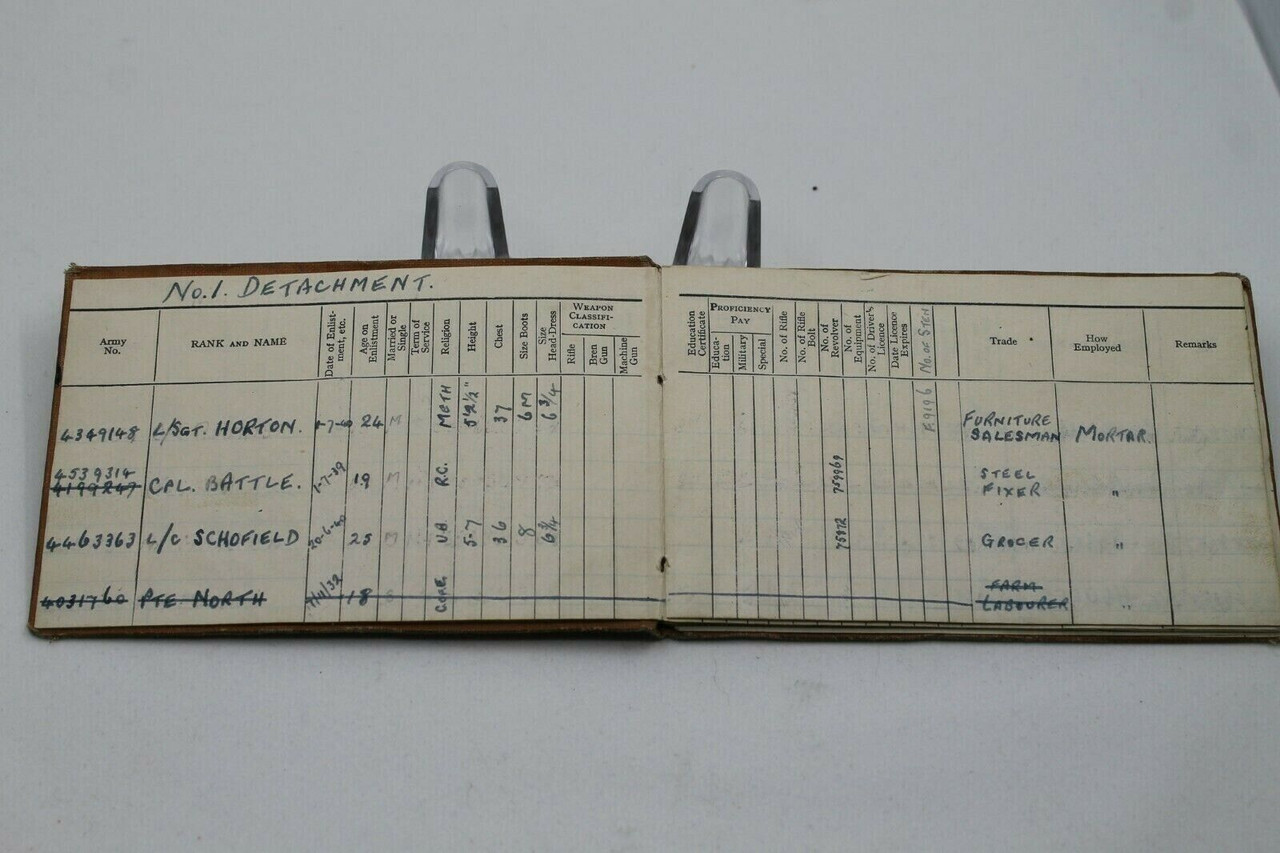 No. 1. DETACHMENT.
Army No.
RANK AND NAME
Date of Enlist-ment, etc.
Age on Enlistment
Married or Single
Term of Service
Religion
Height
Chest
Size Boots
Size Head-Dress
WEAPON CLASSIFI-CATION
Rifle
Bren Gun
Machine Gun
Education Certificate
PROFICIENCY PAY
Educa-tion
Military
Special
No. of Rifle
No. of Rifle Bolt
No. of Revolver
No. of Equipment
No. of Driver's Licence
Date Licence Expires
No. of STEN
Trade
How Employed
Remarks
4349148 L/SGT. HORTON. 24 M METH 5'2½" 37 6M 6 3/4 F.9196 FURNITURE SALESMAN MORTAR.
4539314
4199247 CPL. BATTLE. 1-7-39 19 M R.C. 759969 STEEL FIXER "
4463363 L/C SCHOFIELD 20-6-40 25 M 5.7 36 8 6¾ 75972 GROCER "
4031760 PTE NORTH 18 S C OF E. FARM LABOURER "